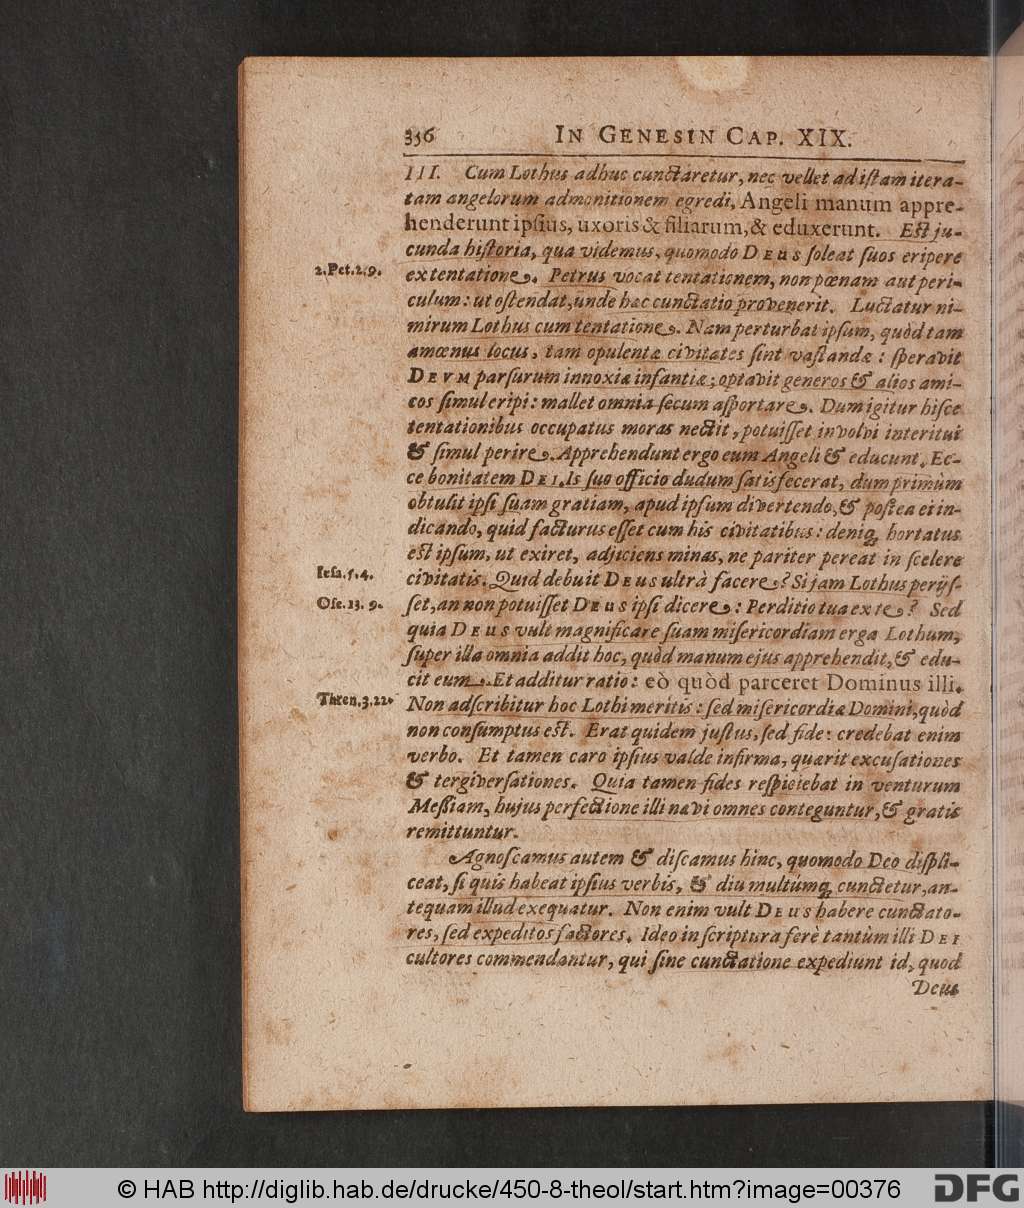 356 IN GENESIN CAP. XIX.
III. Cum Lothus adhuc cunctaretur, nec vellet ad istam itera-
tam angelorum admonitionem egredi, Angeli manum appre-
henderunt ipsius, uxoris & filiarum, & eduxerunt. Est ju-
cunda historia, qua videmus, quomodo DEUS soleat suos eripere
2. Pet. 2. 9.
ex tentatione. Petrus vocat tentationem, non pœnam aut peri-
culum: ut ostendat, unde hac cunctatio provenerit. Luctatur ni-
mirum Lothus cum tentatione. Nam perturbat ipsum, quòd tam
amœnus locus, tam opulentæ civitates sint vastandæ: speravit
DEVM parsurum innoxiæ infantiæ; optavit generos & alios ami-
cos simul eripi: mallet omnia secum asportare. Dum igitur hisce
tentationibus occupatus moras nectit, potuisset involvi interitui
& simul perire. Apprehendunt ergo eum Angeli & educunt. Ec-
ce bonitatem DEI. Is suo officio dudum satisfecerat, dum primùm
obtulit ipsi suam gratiam, apud ipsum divertendo, & postea ei in-
dicando, quid facturus esset cum his civitatibus: deniq; hortatus
est ipsum, ut exiret, adjiciens minas, ne pariter pereat in scelere
Iesa. 5. 4.
civitatis. Quid debuit DEUS ultrà facere? Si jam Lothus perijs-
Ose. 13. 9.
set, an non potuisset DEUS ipsi dicere: Perditio tua ex te? Sed
quia DEUS vult magnificare suam misericordiam erga Lothum,
super illa omnia addit hoc, quòd manum ejus apprehendit, & edu-
cit eum. Et additur ratio: eò quòd parceret Dominus illi.
Thren. 3. 22.
Non adscribitur hoc Lothi meritis: sed misericordiæ Domini, quòd
non consumptus est. Erat quidem justus, sed fide: credebat enim
verbo. Et tamen caro ipsius valde infirma, quærit excusationes
& tergiversationes. Quia tamen fides respiciebat in venturum
Messiam, hujus perfectione illi nævi omnes conteguntur, & gratis
remittuntur.
Agnoscamus autem & discamus hinc, quomodo Deo displi-
ceat, si quis habeat ipsius verbis, & diu multúmq; cunctetur, an-
tequam illud exequatur. Non enim vult DEUS habere cunctato-
res, sed expeditos factores. Ideo in scriptura ferè tantùm illi DEI
cultores commendantur, qui sine cunctatione expediunt id, quod
Deus
© HAB http://diglib.hab.de/drucke/450-8-theol/start.htm?image=00376
DFG